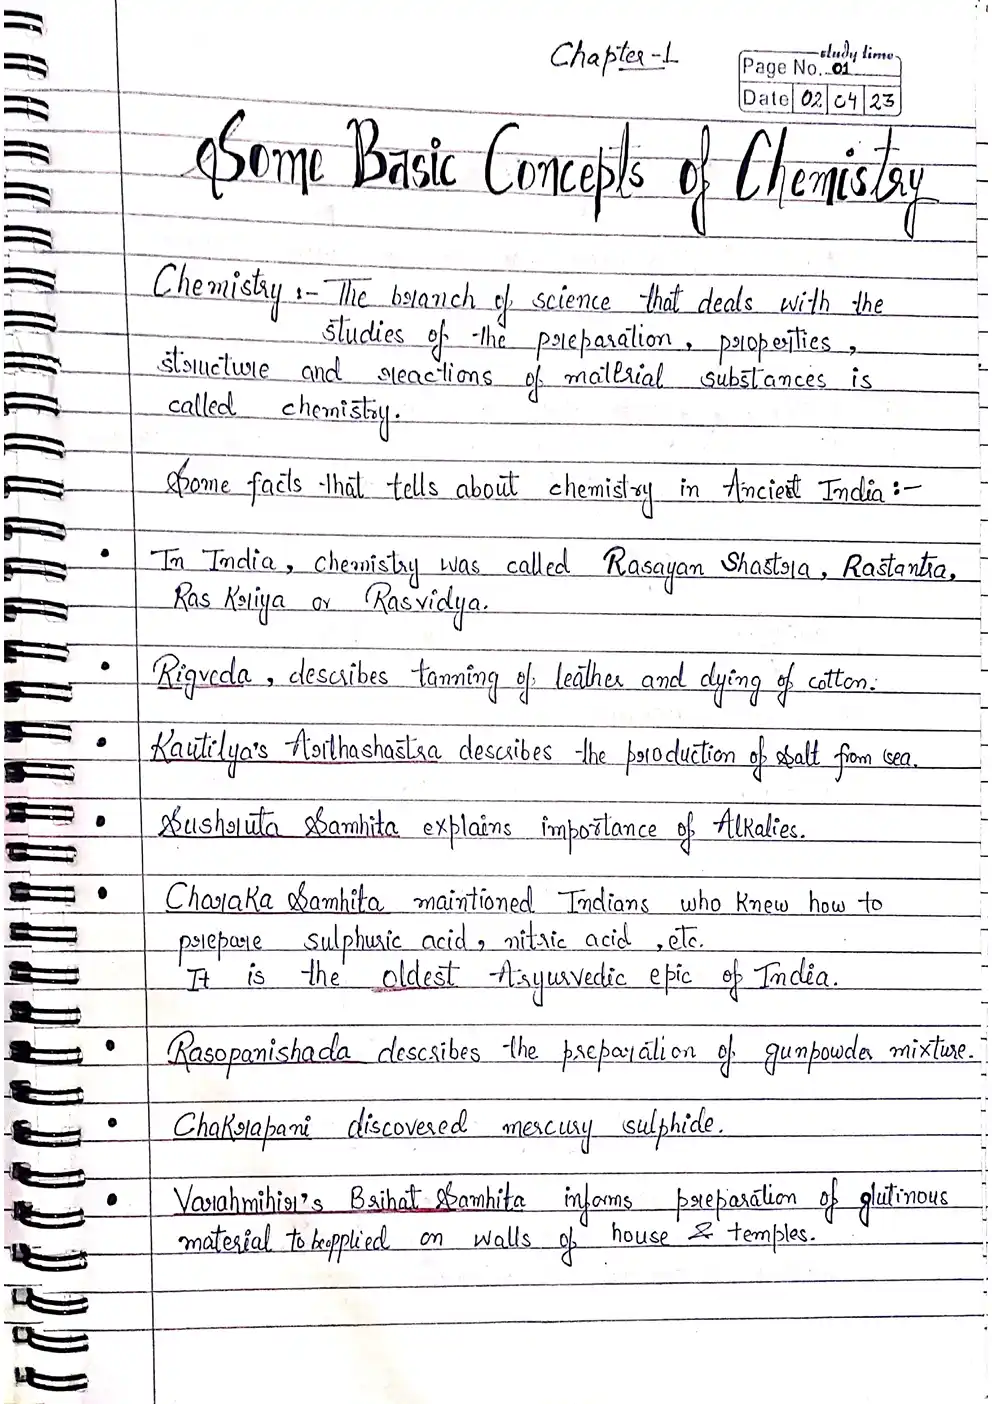 Chapter-1
study time
Page No. 01
Date 02 04 23
Some Basic Concepts of Chemistry
Chemistry :- The branch of science that deals with the
studies of the preparation, properties,
structure and reactions of material substances is
called chemistry.
Some facts that tells about chemistry in Ancient India :-
• In India, chemistry was called Rasayan Shastra, Rastantra,
Ras Kriya or Rasvidya.
• Rigveda, describes tanning of leather and dying of cotton.
• Kautilya's Arthashastra describes the production of salt from sea.
• Sushruta Samhita explains importance of Alkalies.
• Charaka Samhita maintioned Indians who knew how to
prepare sulphuric acid, nitric acid, etc.
It is the oldest Aryurvedic epic of India.
• Rasopanishada describes the preparation of gunpowder mixture.
• Chakrapani discovered mercury sulphide.
• Varahmihir's Brihat Samhita informs preparation of glutinous
material to be applied on walls of house & temples.